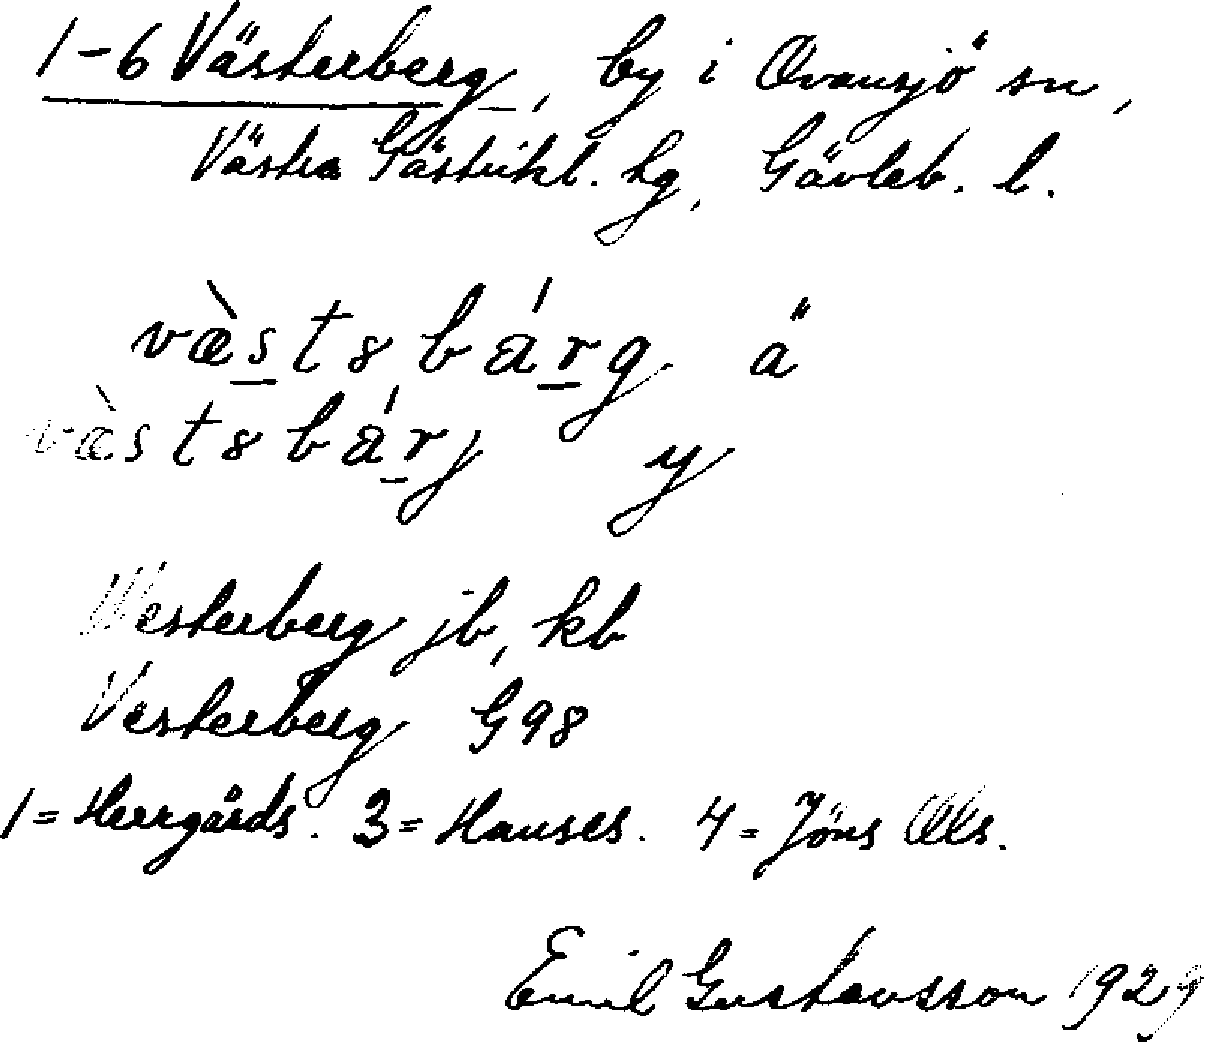 1-6 Västerberg, by i Ovansjö sn,
Västra Gästrikl. hg, Gävleb. l.
væ̀stsbárg ä
væ̀stsbárj y
Westerberg jb, kb
Vesterberg G98
1 = Herrgårds. 3 = Hanses. 4 = Jöns Ols.
Emil Gustavsson 1929